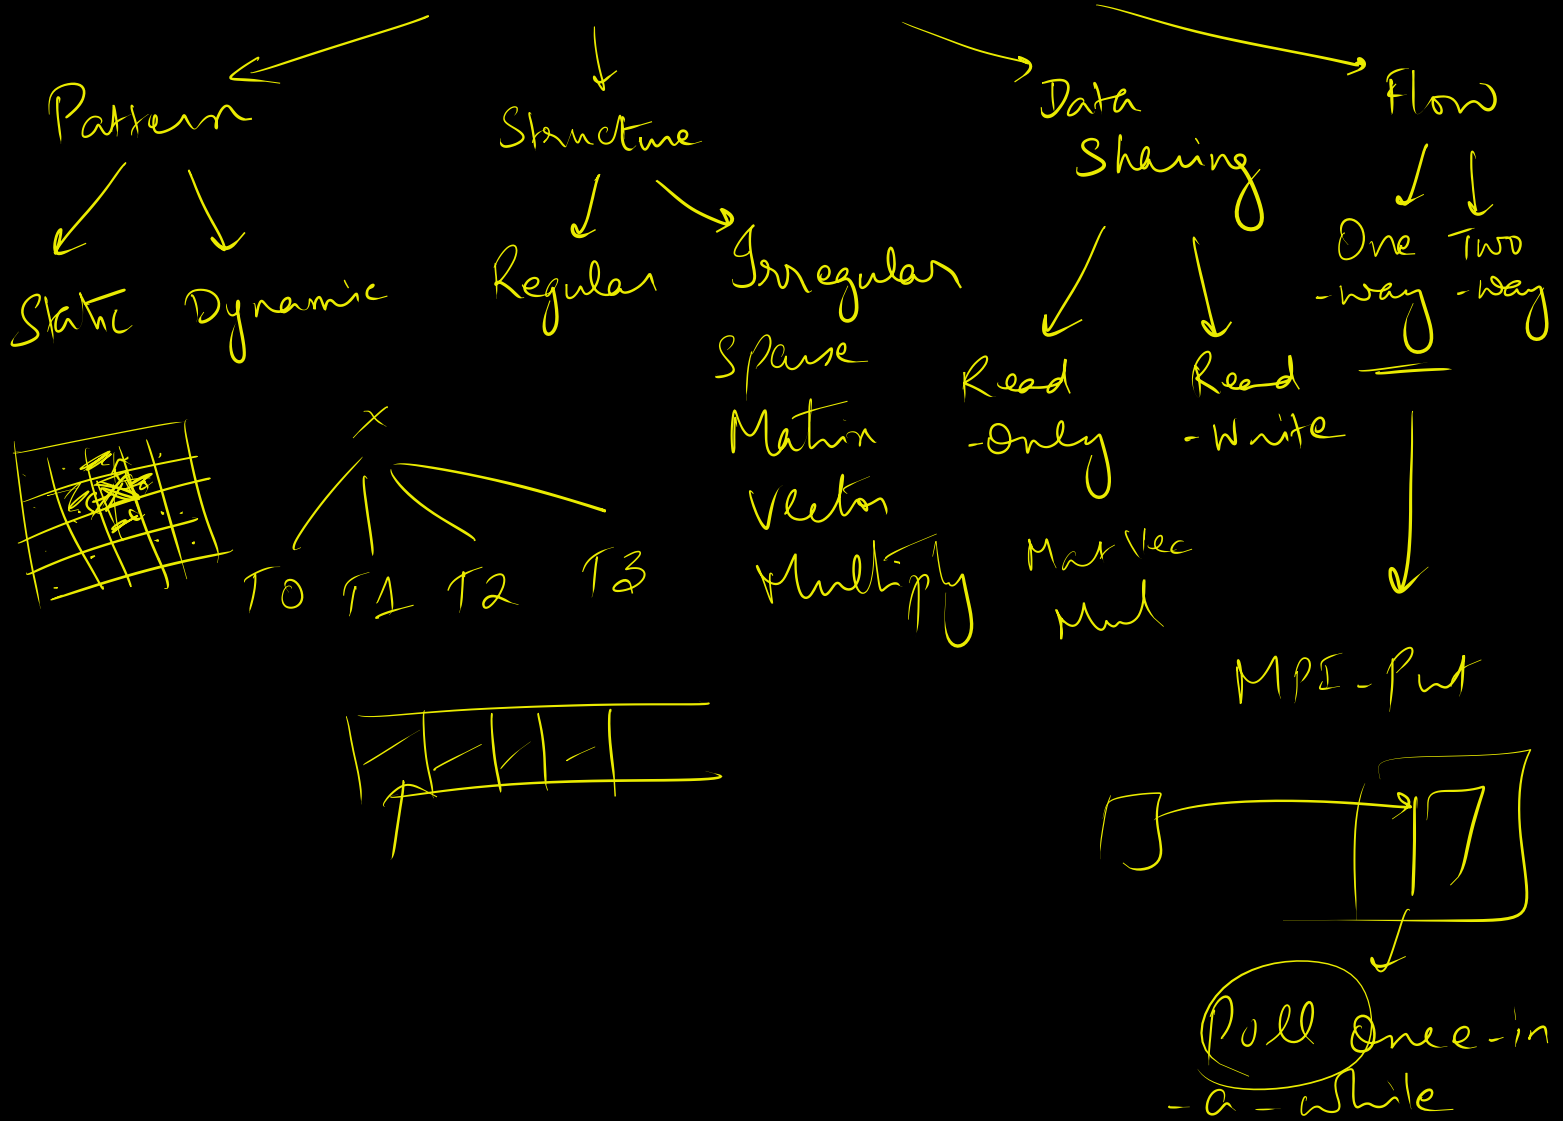 Pattern
Static
Dynamic
Structure
Regular
Irregular
Sparse
Matrix
Vector
Multiply
Data
Sharing
Read
-Only
MatVec
Mul
Read
-Write
Flow
One
-way
Two
-way
MPI-Put
Poll once-in
-a-while
X
T0 T1 T2 T3